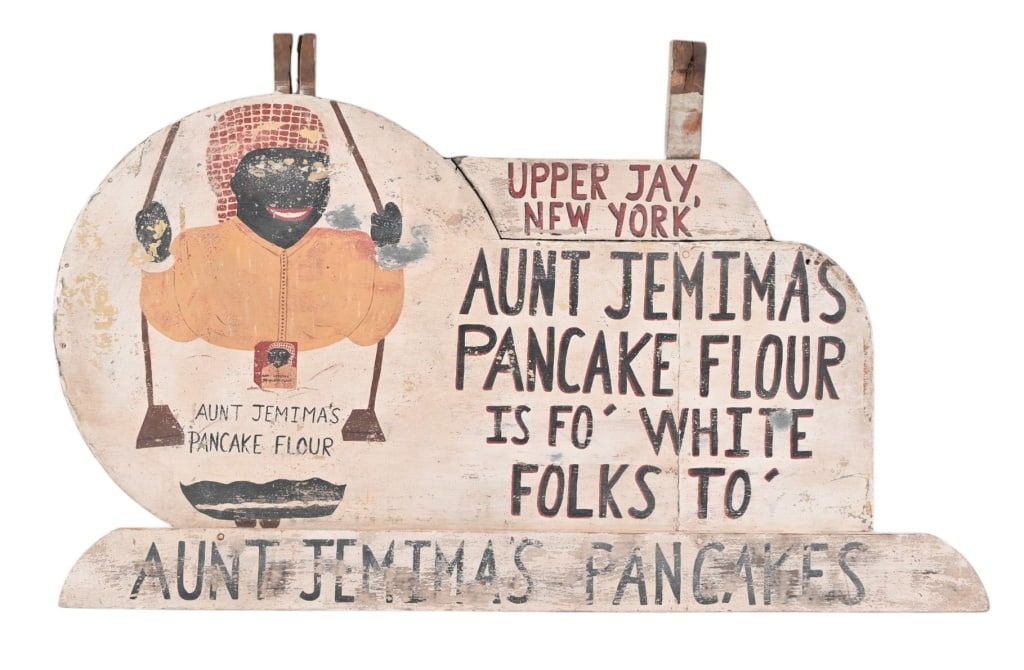 UPPER JAY,
NEW YORK
AUNT JEMIMA'S
PANCAKE FLOUR
IS FO' WHITE
FOLKS TO'
AUNT JEMIMA'S
PANCAKE FLOUR
AUNT JEMIMA'S PANCAKES